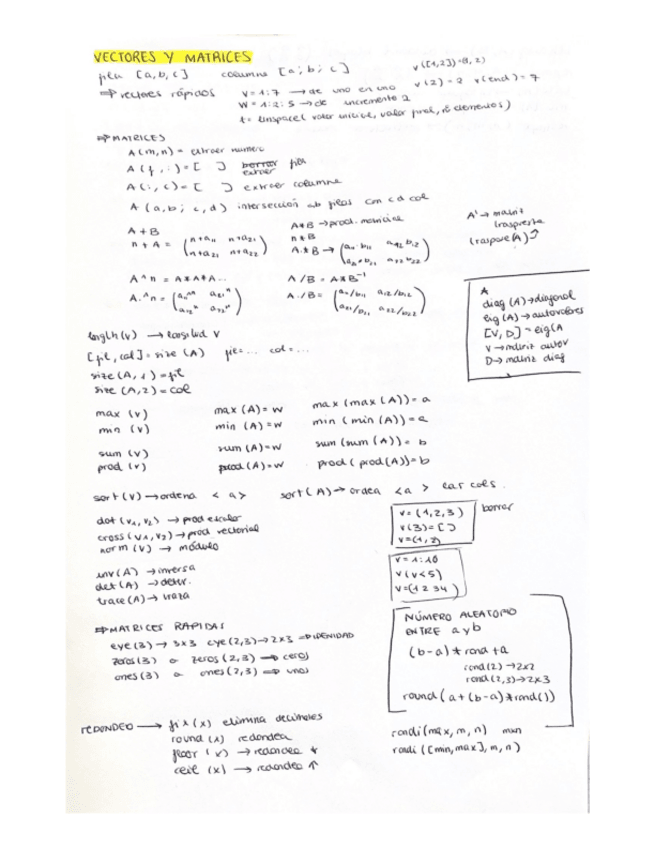 VECTORES Y MATRICES
fila [a,b,c] columna [a; b; c] v([1,2])=(1, 2)
⇒ vectores rápidos v = 1:7 → de uno en uno v(2) = 2 v(end) = 7
w = 1:2:5 → de incremento 2
t = linspace( valor inicial, valor final, nº elementos)
⇒ MATRICES
A(m,n) = extraer numero
A(f, :) = [ ] borrar extraer fila
A(:, c) = [ ] extraer columna
A(a,b; c,d) intersección ab filas con cd col
A + B A*B → prod. matricial A' → matriz traspuesta
n + A = (n+a₁₁ n+a₂₁ n+a₂₁ n+a₂₂) n*B A.*B → (a₁₁·b₁₁ a₁₂b₁₂ a₂₁b₁₁ a₂₂b₂₂) (traspose(A)
A^n = A*A*A... A/B = A*B⁻¹
A.^n = (a₁₁ⁿ a₂₁ⁿ a₁₂ⁿ a₂₂ⁿ) A./B = (a₁₁/b₁₁ a₁₂/b₁₂ a₂₁/b₂₁ a₂₂/b₂₂)
A
diag(A) → diagonal
eig(A) → autovalores
[V, D] = eig(A
V → matriz autov
D → matriz diag
length(v) → longitud v
[fil, col] = size(A) fil=... col=...
size(A, 1) = fil
size(A,2) = col
max (v) max (A) = w max (max(A)) = a
min (v) min (A) = w min (min (A)) = a
sum (v) sum (A) = w sum (sum (A)) = b
prod (v) prod(A) = w prod( prod(A)) = b
sort(v) → ordena < a > sort(A) → ordena < a > las cols.
dot(v₁,v₂) → prod escalar
cross(v₁,v₂) → prod vectorial
norm(v) → módulo
v = (1,2,3) borrar
v(3) = [ ]
v = (1, 2)
inv(A) → inversa
det(A) → deter.
trace(A) → traza
v = 1:10
v(v<5)
v = (1 2 3 4)
⇒ MATRICES RAPIDAS
eye(3) → 3x3 eye(2,3) → 2x3 ⇒ IDENIDAD
zeros(3) o zeros(2,3) → ceros
ones(3) o ones(2,3) ⇒ unos
NÚMERO ALEATORIO
ENTRE a y b
(b-a)*rand+a
rand(2) → 2x2
rand(2,3) → 2x3
round(a+(b-a)*rand())
REDONDEO → fix(x) elimina decimales
round(x) redondea
floor(x) → redondeo ↓
ceil(x) → redondeo ↑
randi(max, m, n) mxn
randi([min,max], m, n)